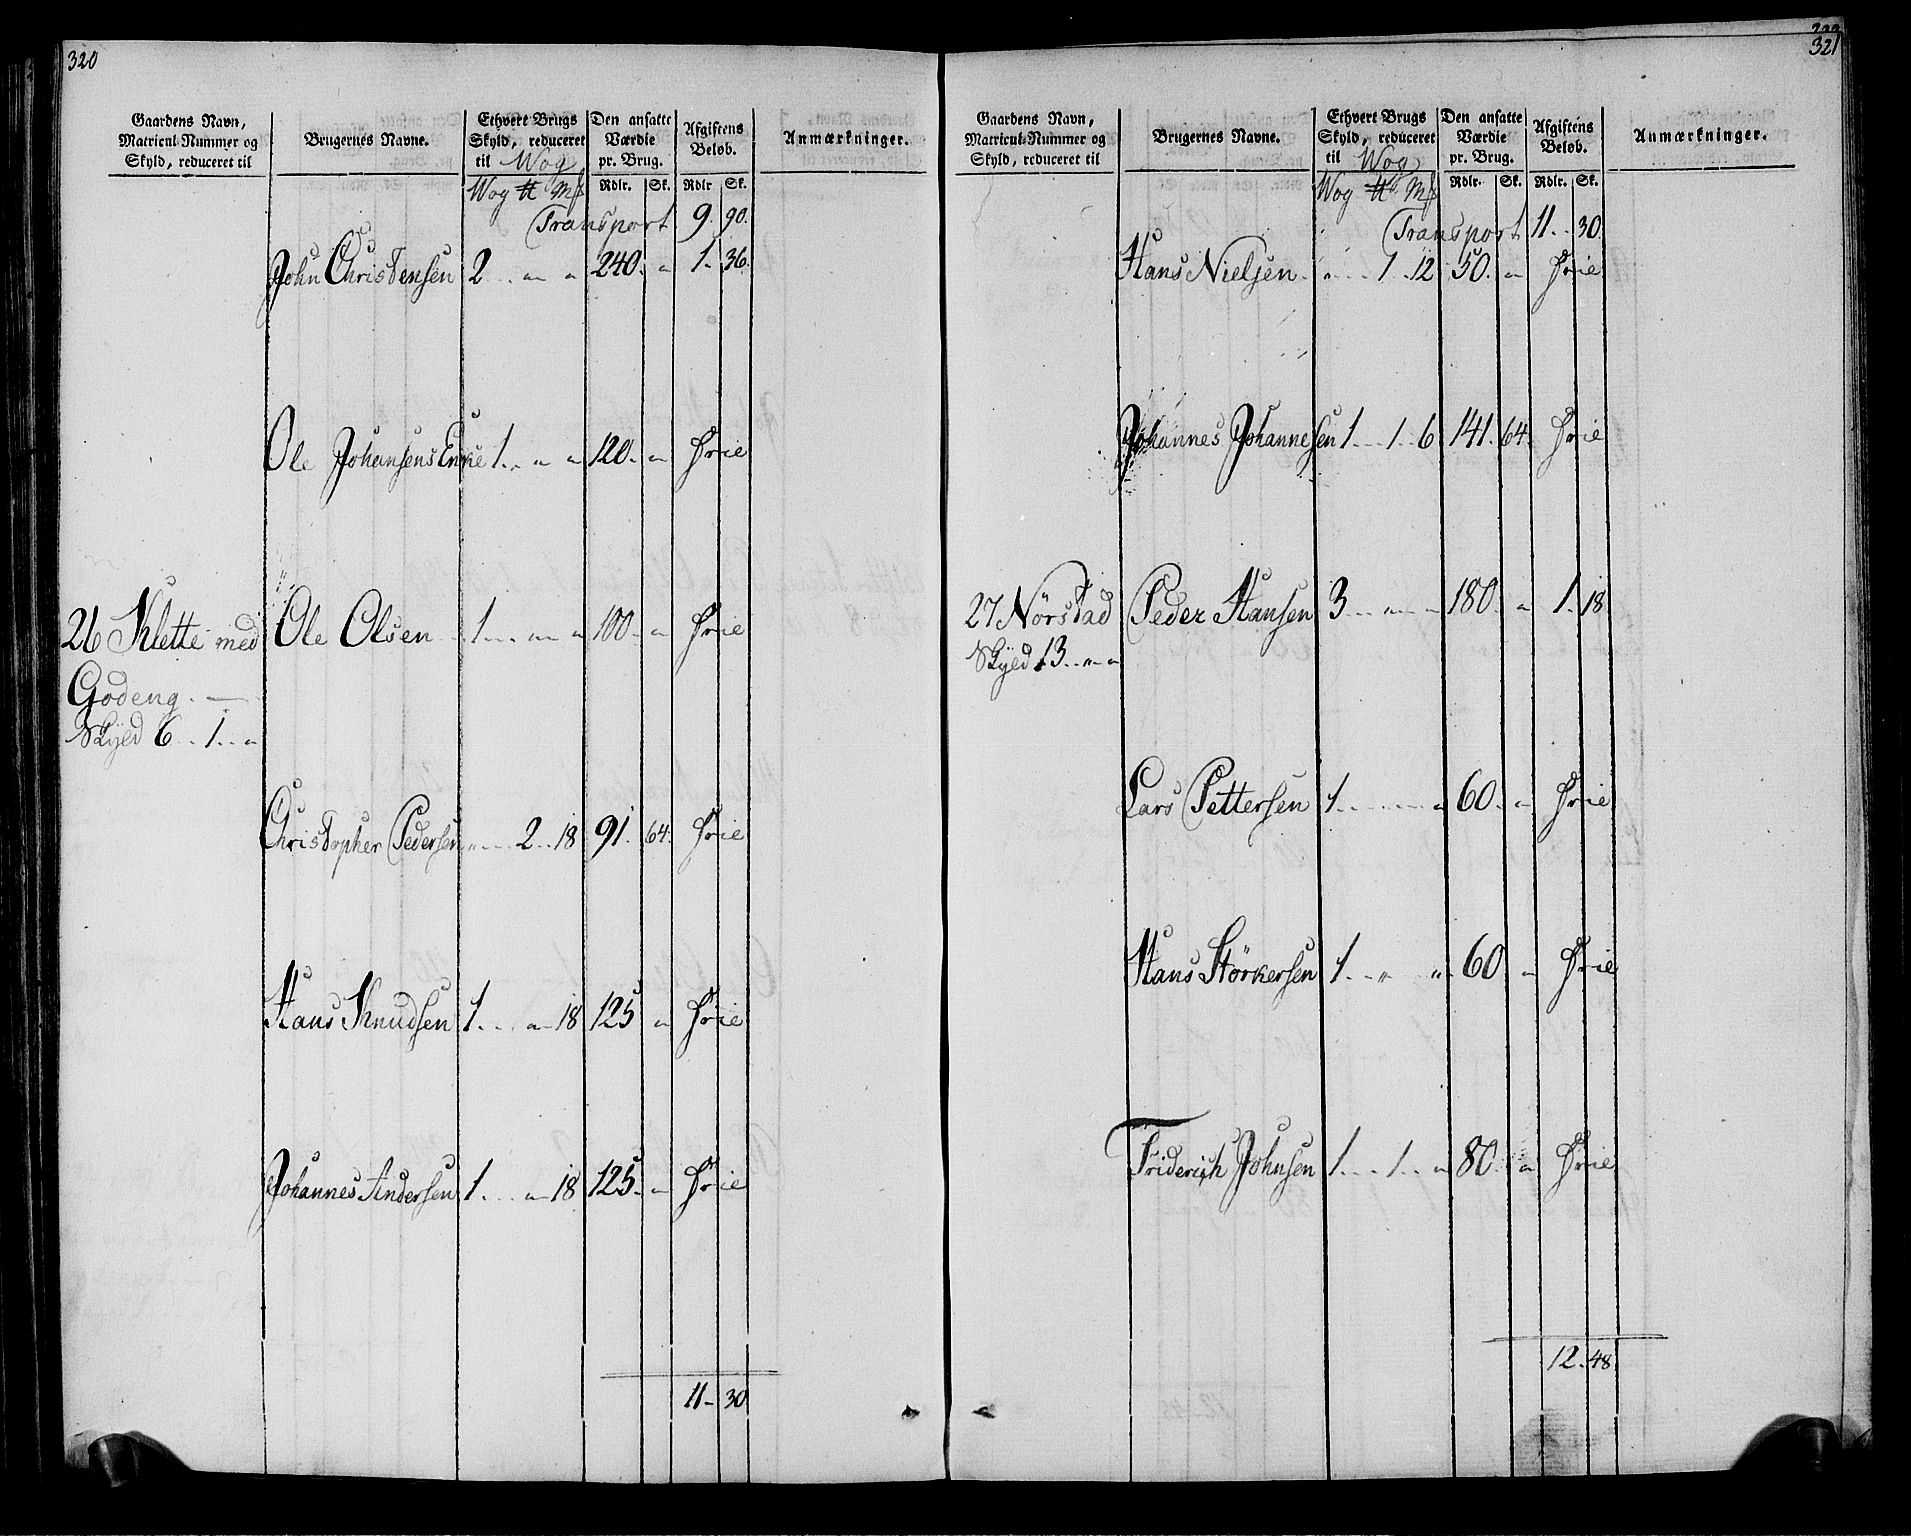 320
Gaardens Navn, Matricul-Nummer og Skyld, reduceret til
Brugernes Navne.
Ethvert Brugs Skyld, reduceret til Wog
Den ansatte Værdie pr. Brug.
Afgiftens Beløb.
Anmærkninger.
Wog ℔ Mk Rdlr. Sk. Rdlr Sk.
Transport 9. 90.
John Christensen 2 „ „ 240. „ 1. 36.
Ole Johansens Enke 1. „ „ 120. „ frie
26 Klette med Ole Olsen 1 „ „ 100. „ frie
Godeng.
Skyld 6 .. 1 .. „
Christopher Pedersen „ 2 .. 18 91. 64. frie
Hans Knudsen 1 „ 18 125 „ frie
Johannes Andersen 1 „ 18 125. „ frie
11 - 30
321
Gaardens Navn, Matricul-Nummer og Skyld, reduceret til
Brugernes Navne.
Ethvert Brugs Skyld, reduceret til Wog
Den ansatte Værdie pr. Brug.
Afgiftens Beløb.
Anmærkninger.
Wog ℔ Mk Rdlr. Sk. Rdlr. Sk.
Transport 11 .. 30.
Hans Nielsen „ 1 .. 12 50. „ frie
Johannes Johannesen 1 .. 1 .. 6 141. 64. frie
27 Nörstad Peder Hansen 3 „ „ 180 „ 1. 18
Skyld 13 .. „ „
Lars Pettersen 1 „ „ 60. „ frie
Hans Störkersen 1 „ „ 60 „ frie
Friderich Johnsen 1 .. 1 .. „ 80. „ frie
12. 48.